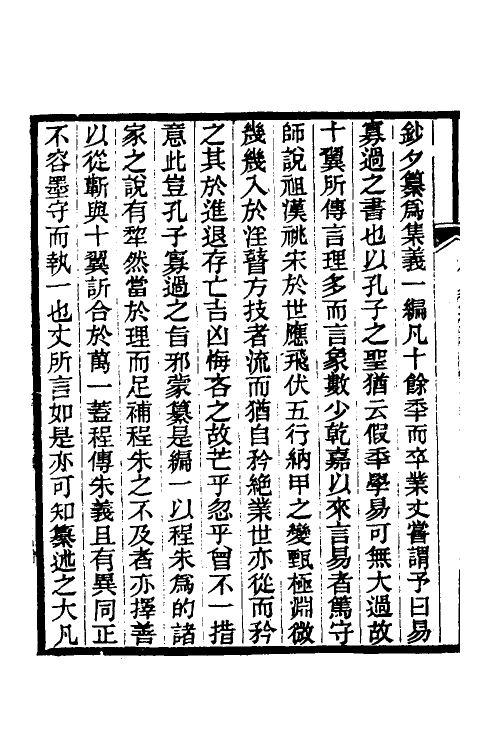 鈔夕纂爲集義一編凡十餘秊而卒業丈嘗謂予曰易
寡過之書也以孔子之聖猶云假秊學易可無大過故
十翼所傳言理多而言象數少乾嘉以來言易者篤守
師說祖漢祧宋於世應飛伏五行納甲之變甄極淵微
幾幾入於淫瞽方技者流而猶自矜絶業世亦從而矜
之其於進退存亡吉凶悔吝之故芒乎忽乎曾不一措
意此豈孔子寡過之旨邪蒙纂是編一以程朱爲的諸
家之說有犂然當於理而足補程朱之不及者亦擇善
以從蘄與十翼訢合於萬一蓋程傳朱義且有異同正
不容墨守而執一也丈所言如是亦可知纂述之大凡